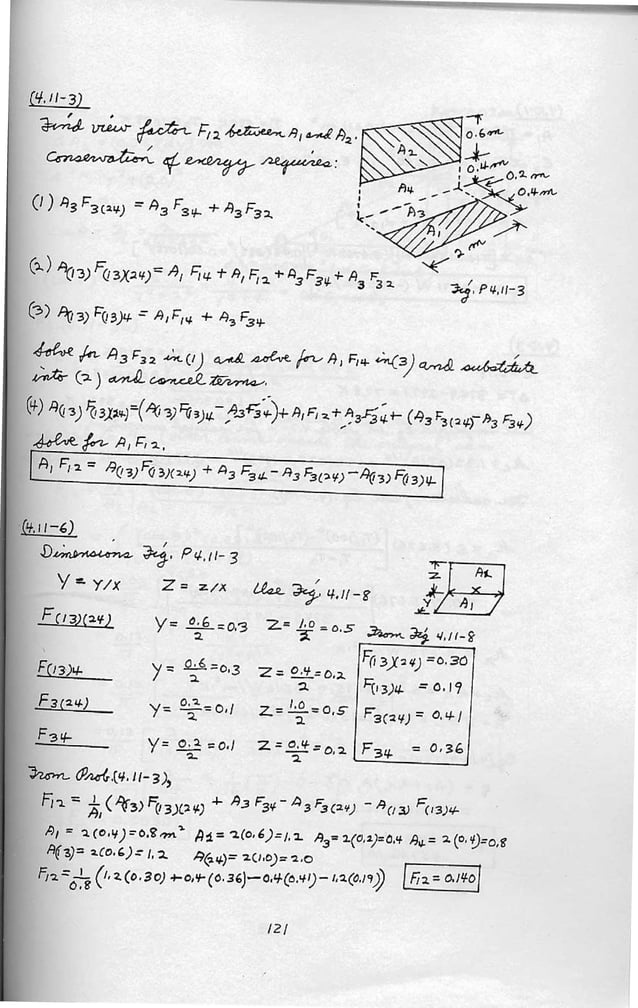 (4.11-3)
Find view factor F12 between A1 and A2.
Conservation of energy requires:
(1) A3 F3(24) = A3 F34 + A3 F32
(2) A(13) F(13)(24) = A1 F14 + A1 F12 + A3 F34 + A3 F32
(3) A(13) F(13)4 = A1 F14 + A3 F34
A2
0.6m
0.4m
0.2 m
0.4m
A4
A3
A1
2 m
Fig. P4.11-3
Solve for A3 F32 in (1) and solve for A1 F14 in (3) and substitute
into (2) and cancel terms.
(4) A(13) F(13)(24) = (A(13) F(13)4 - A3 F34) + A1 F12 + A3 F34 + (A3 F3(24) - A3 F34)
Solve for A1 F12.
A1 F12 = A(13) F(13)(24) + A3 F34 - A3 F3(24) - A(13) F(13)4
(4.11-6)
Dimensions Fig. P4.11-3
Y = Y/X Z = Z/X Use Fig. 4.11-8
Z
A2
X
Y
A1
From Fig 4.11-8
F(13)(24) Y = 0.6/2 = 0.3 Z = 1.0/2 = 0.5
F(13)4 Y = 0.6/2 = 0.3 Z = 0.4/2 = 0.2
F3(24) Y = 0.2/2 = 0.1 Z = 1.0/2 = 0.5
F34 Y = 0.2/2 = 0.1 Z = 0.4/2 = 0.2
F(13)(24) = 0.30
F(13)4 = 0.19
F3(24) = 0.41
F34 = 0.36
From Prob.(4.11-3),
F12 = 1/A1 (A(13) F(13)(24) + A3 F34 - A3 F3(24) - A(13) F(13)4
A1 = 2(0.4)=0.8 m² A2 = 2(0.6)=1.2 A3 = 2(0.2)=0.4 A4 = 2(0.4)=0.8
A(13) = 2(0.6)=1.2 A(24) = 2(1.0)=2.0
F12 = 1/0.8 (1.2(0.30) + 0.4(0.36) - 0.4(0.41) - 1.2(0.19)) F12 = 0.140
121